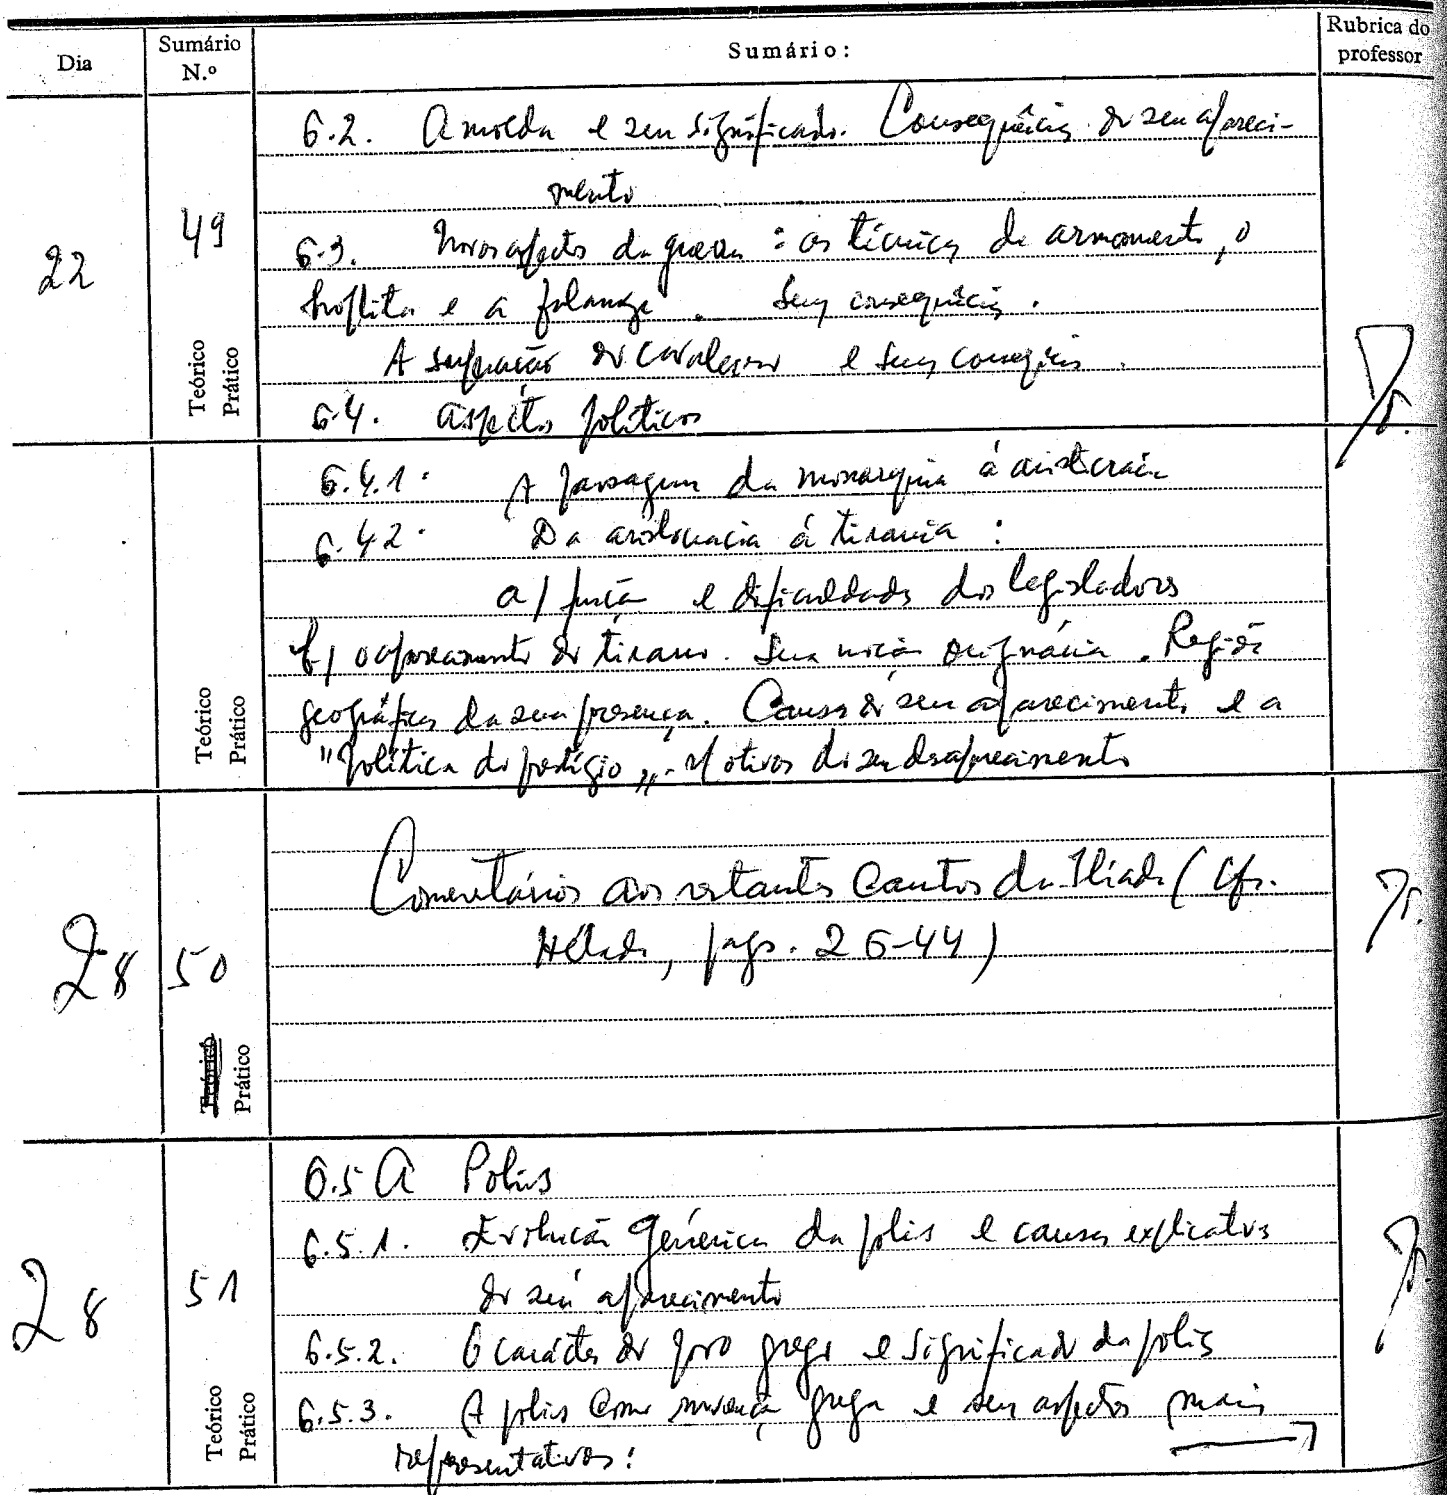 Dia
Sumário N.º
Sumário:
Rubrica do professor
22
49
Teórico
Prático
6.2. A moeda e seu significado. Consequências do seu apareci-
mento
6.3. Novos aspectos da guerra: as técnicas de armamento, o
hoplita e a falange. Suas consequências.
A superação do cavaleiro e suas consequências.
6.4. Aspectos políticos
Teórico
Prático
6.4.1. A passagem da monarquia à aristocracia
6.4.2. Da aristocracia á tirania:
a) função e dificuldades dos legisladores
b) o aparecimento do tirano. Sua noção originária. Regiões
geográficas da sua presença. Causas do seu aparecimento e a
"Política de prestígio". Motivos do seu desaparecimento
28
50
Teórico
Prático
Comentários aos restantes Cantos da Ilíada (Cfr.
Hélade, pags. 26-44)
28
51
Teórico
Prático
6.5 A Polis
6.5.1. Evolução genérica da polis e causas explicativas
do seu aparecimento
6.5.2. O carácter do povo grego e significado da polis
6.5.3. A polis como grega e seus aspectos mais
representativos: